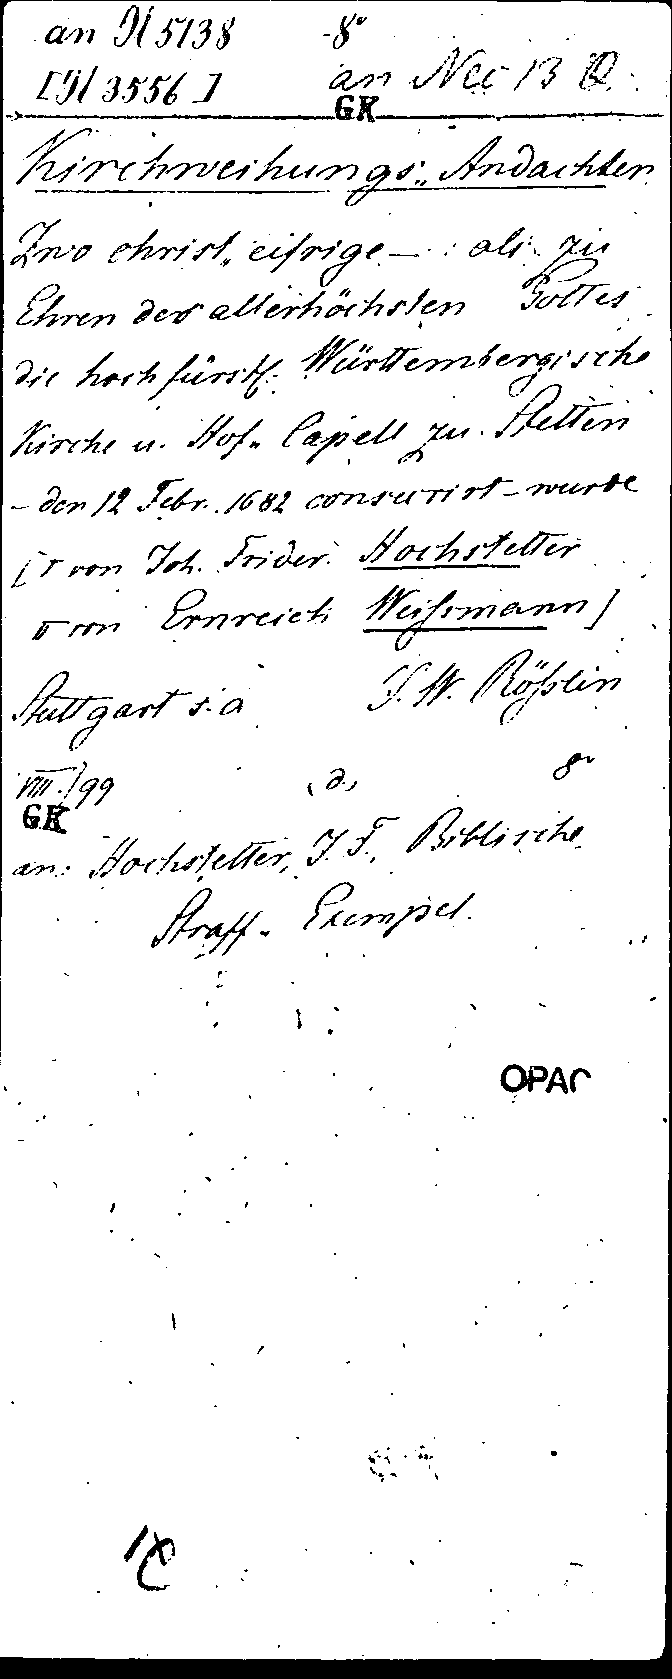 an Yl 5138 -8°
[Yl 3556] an Nec 13 Q
GK
Kirchweihungs„ Andachten
Zwo christ„ eifrige — : als zu
Ehren des allerhöchsten Gottes
die hochfürstl. Württembergische
Kirche u. Hof„ Capell zu Stetten
- den 12 Febr. 1682 consecrirt - wurde
[I von Joh. Frider. Hochstetter
II von Ernreich Weißmann]
Stuttgart s. a J. W. Rößlin
VIII. 199 (d) 8°
GK
an: Hochstetter, J. F., Biblische
Straff„ Exempel.
OPAC